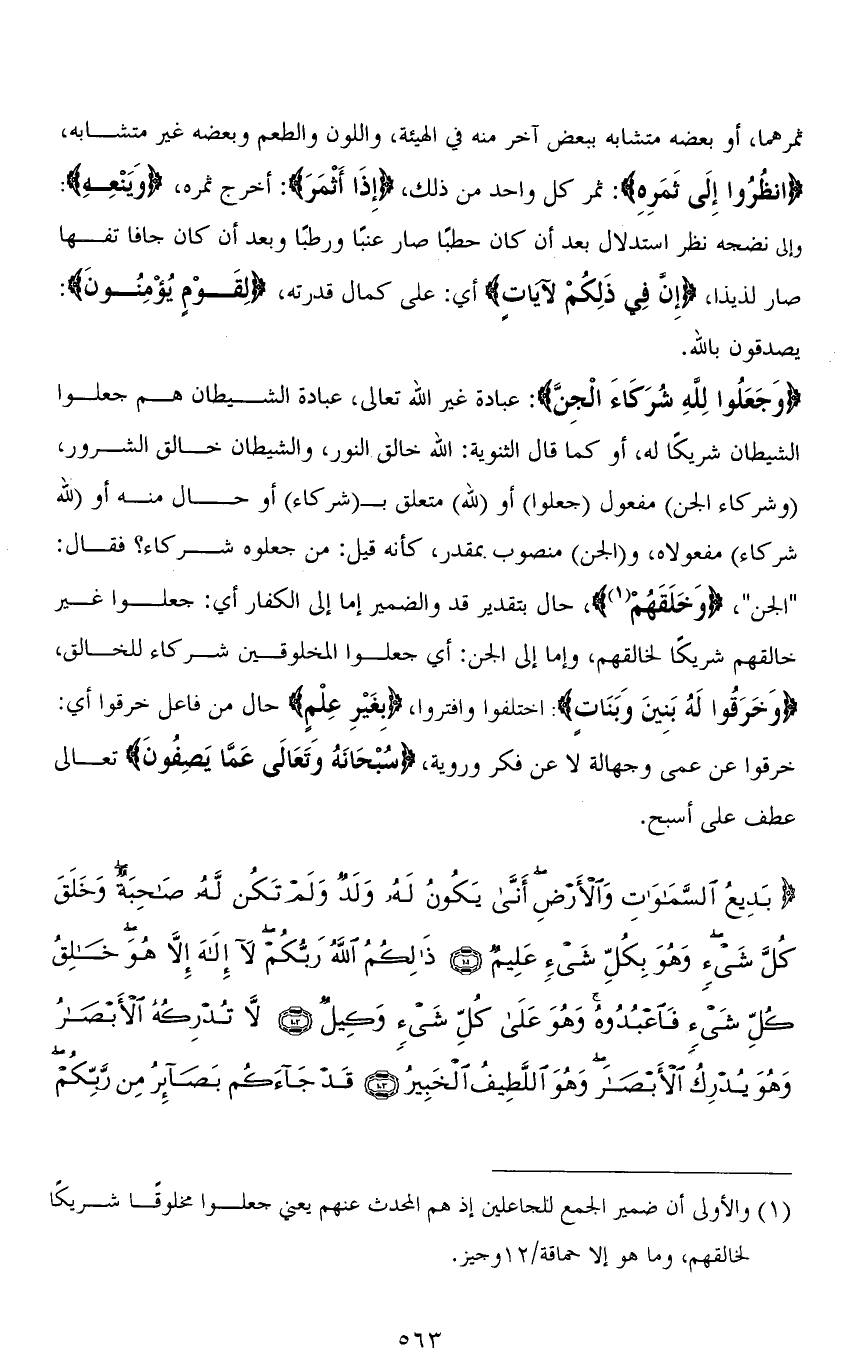 ثمرهما، أو بعضه متشابه ببعض آخر منه في الهيئة، واللون والطعم وبعضه غير متشـــابه،
﴿انظُرُوا إِلَى ثَمَرِهِ﴾: ثمر كل واحد من ذلك، ﴿إِذَا أَثْمَرَ﴾: أخرج ثمره، ﴿وَيَنْعِـــهِ﴾:
وإلى نضجه نظر استدلال بعد أن كان حطبًا صار عنبًا ورطبًا وبعد أن كان جافا تفـــها
صار لذيذا، ﴿إِنَّ فِي ذَلِكُمْ لآيَاتٍ﴾ أي: على كمال قدرته، ﴿لِقَـــوْمٍ يُؤْمِنُـــونَ﴾:
يصدقون بالله.
﴿وَجَعَلُوا لِلَّهِ شُرَكَاءَ الْجِنَّ﴾: عبادة غير الله تعالى، عبادة الشـــيطان هـــم جعلـــوا
الشيطان شريكًا له، أو كما قال الثنوية: الله خالق النور، والشيطان خـــالق الشـــرور،
(وشركاء الجن) مفعول (جعلوا) أو (لله) متعلق بـــ(شركاء) أو حـــال منـــه أو (لله
شركاء) مفعولاه، و(الجن) منصوب بمقدر، كأنه قيل: من جعلوه شـــركاء؟ فقـــال:
"الجن"، ﴿وَخَلَقَهُمْ(١)﴾، حال بتقدير قد والضمير إما إلى الكفار أي: جعلـــوا غـــير
خالقهم شريكًا لخالقهم، وإما إلى الجن: أي جعلـــوا المخلوقـــين شـــركاء للخـــالق،
﴿وَخَرَقُوا لَهُ بَنِينَ وَبَنَاتٍ﴾: اختلفوا وافتروا، ﴿بِغَيْرِ عِلْمٍ﴾ حال من فاعل خرقوا أي:
خرقوا عن عمى وجهالة لا عن فكر وروية، ﴿سُبْحَانَهُ وَتَعَالَى عَمَّا يَصِفُونَ﴾ تعـــالى
عطف على أسبح.
﴿ بَدِيعُ ٱلسَّمَٰوَٰتِ وَٱلْأَرْضِۖ أَنَّىٰ يَكُونُ لَهُۥ وَلَدٌ وَلَمْ تَكُن لَّهُۥ صَٰحِبَةٌۖ وَخَلَقَ
كُلَّ شَىْءٍۖ وَهُوَ بِكُلِّ شَىْءٍ عَلِيمٌ ۝١٠١ ذَٰلِكُمُ ٱللَّهُ رَبُّكُمْۖ لَآ إِلَٰهَ إِلَّا هُوَۖ خَٰلِقُ
كُلِّ شَىْءٍ فَٱعْبُدُوهُۚ وَهُوَ عَلَىٰ كُلِّ شَىْءٍ وَكِيلٌ ۝١٠٢ لَّا تُدْرِكُهُ ٱلْأَبْصَٰرُ
وَهُوَ يُدْرِكُ ٱلْأَبْصَٰرَۖ وَهُوَ ٱللَّطِيفُ ٱلْخَبِيرُ ۝١٠٣ قَدْ جَآءَكُم بَصَآئِرُ مِن رَّبِّكُمْۖ
(١) والأولى أن ضمير الجمع للجاعلين إذ هم المحدث عنهم يعني جعلـــوا مخلوقًـــا شـــريكًا
لخالقهم، وما هو إلا حماقة/١٢وجيز.
٥٦٣